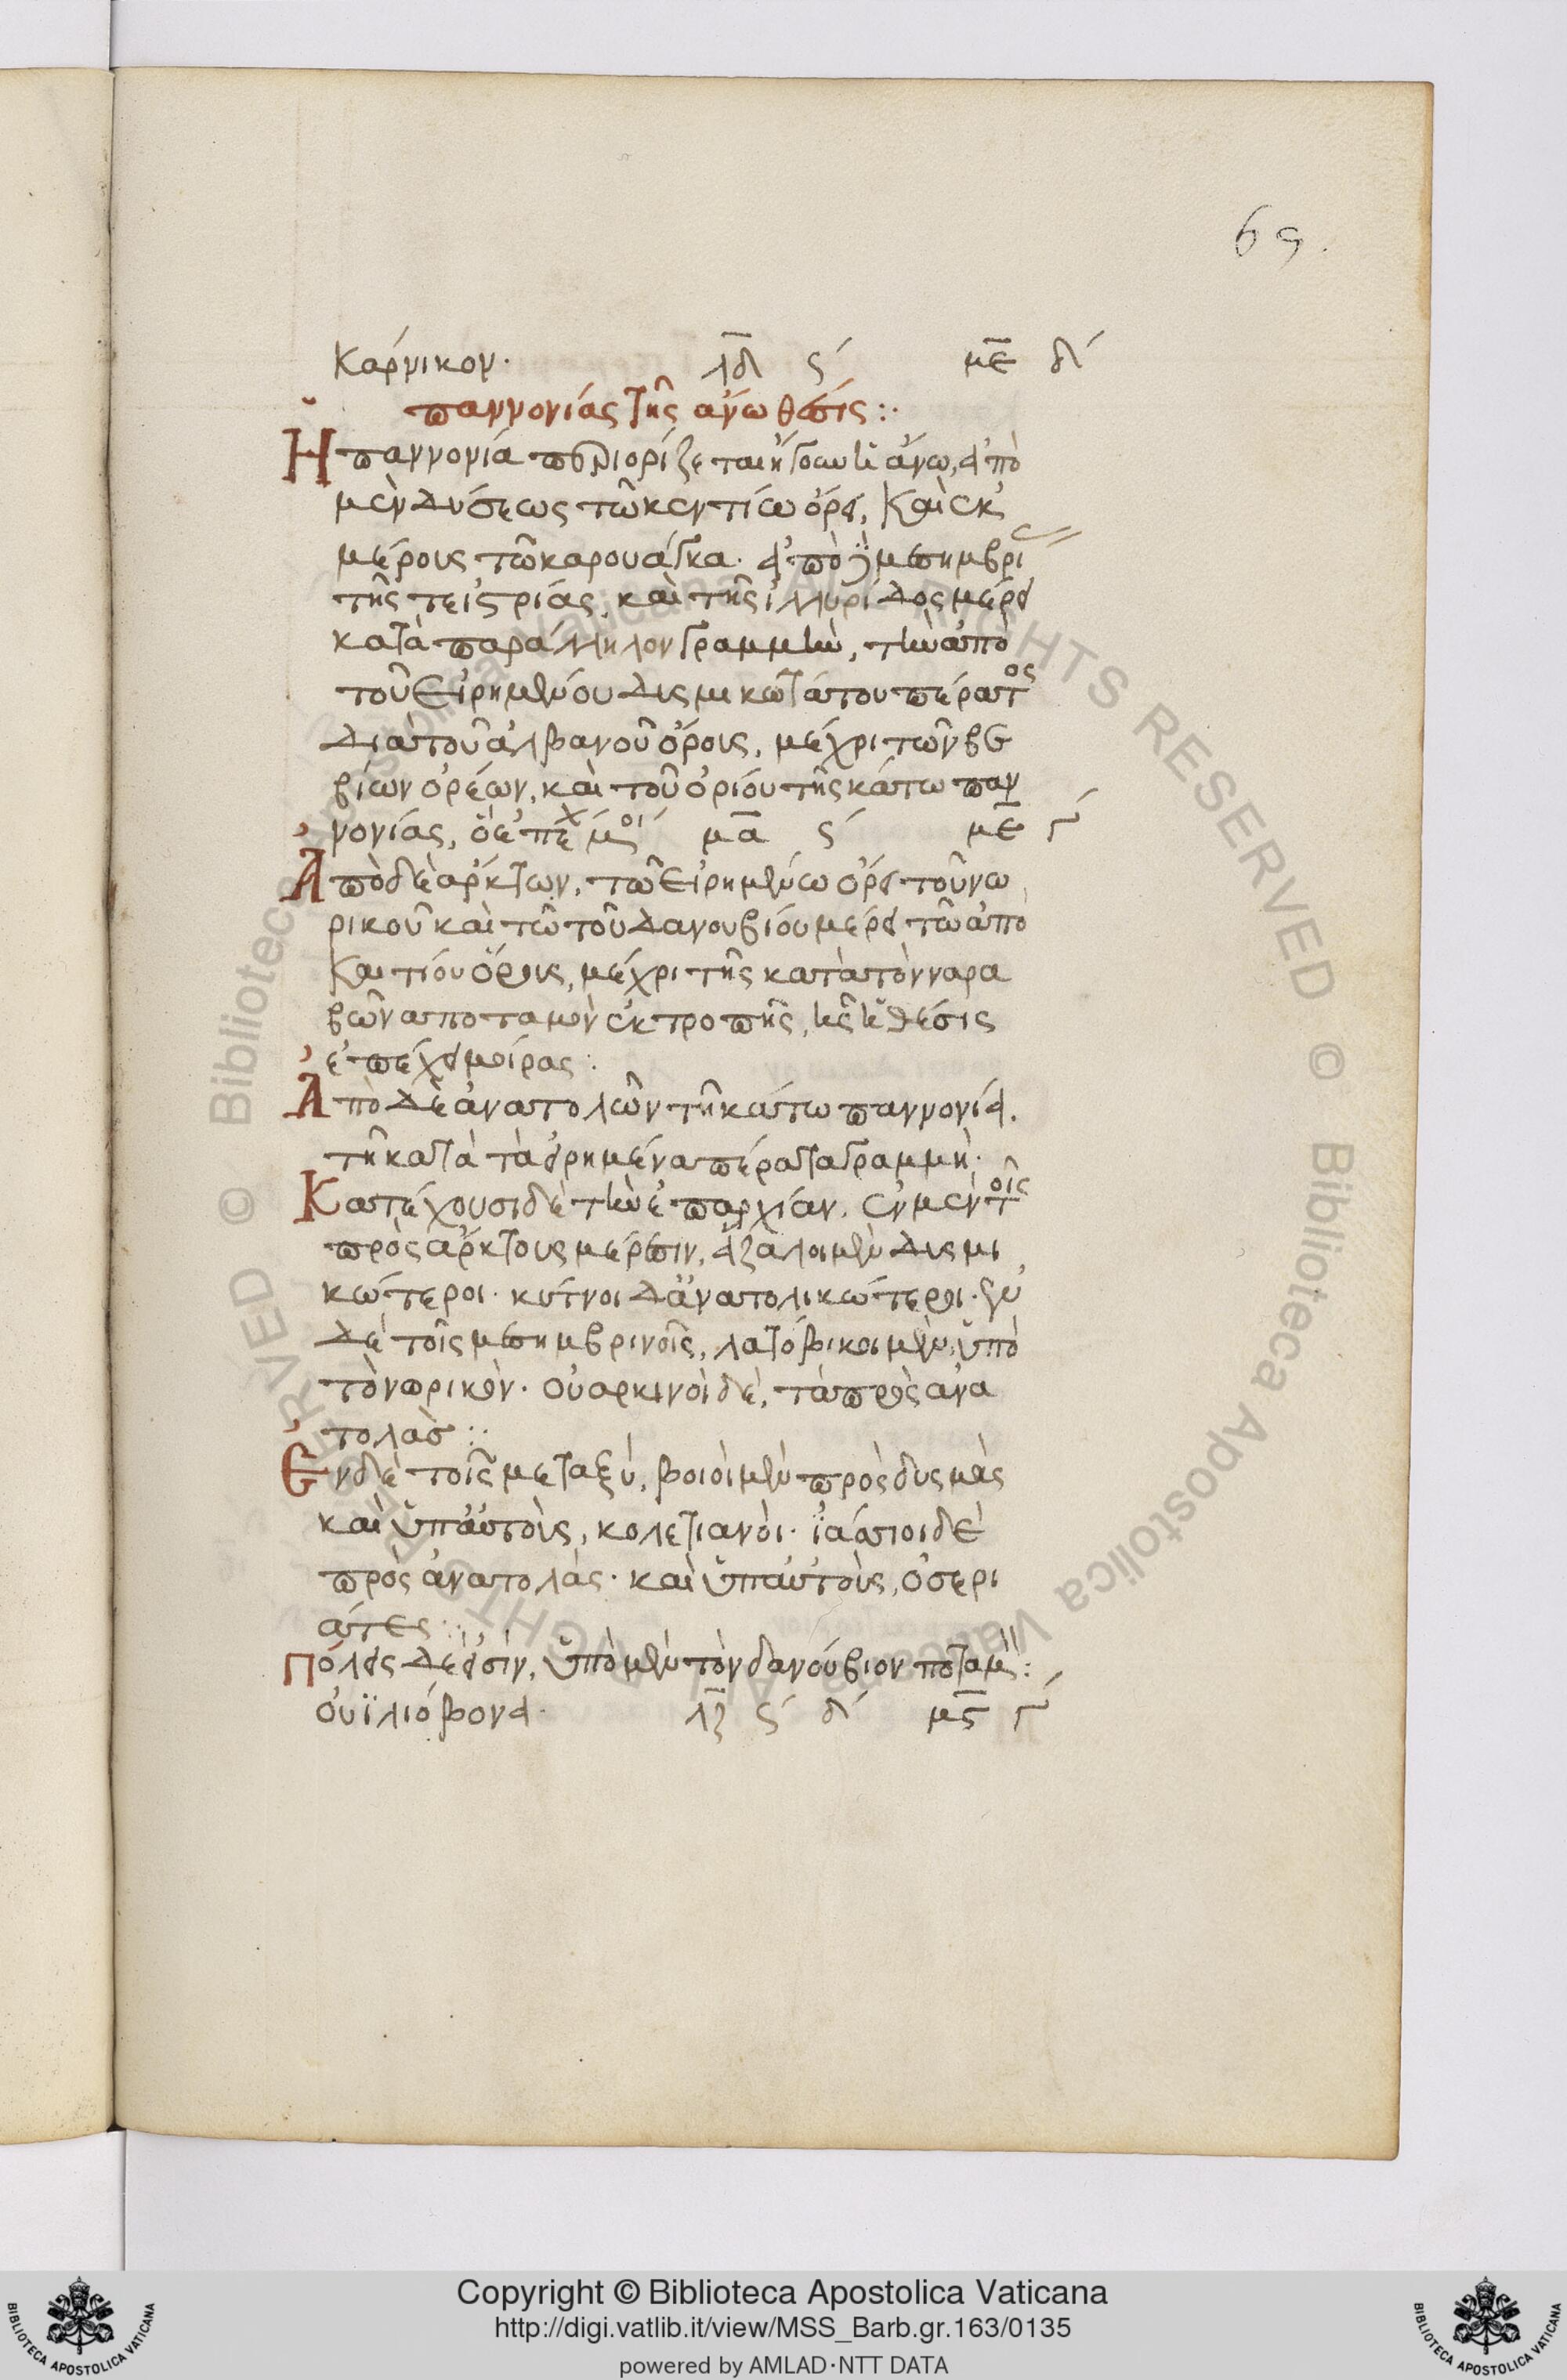 69.
Κάρνικον· λδ ϛ´ με δ´
παννονίας τῆς ἄνω θέσις :·
Ἡ παννονία περιορίζεται ἡ ἄνω, ἀπὸ
μὲν δύσεως τῶ κεντίω ὄρει, καὶ ἐκ
μέρους τῶ καρουάγκα· ἀπὸ δὲ μεσημβρί
τῆς τε ἰστρίας, καὶ τῆς ἰλλυρίδος μέρει
κατὰ παράλληλον γραμμὴν, τὴν ἀπὸ
τοῦ εἰρημένου δυσμικωτάτου πέρατος
διὰ τοῦ ἀλβανοῦ ὄρους, μέχρι τῶν βε
βίων ὀρέων, καὶ τοῦ ὁρίου τῆς κάτω παν
νονίας, ὃ ἐπέχ μοί μα ϛ´ με γ´
Ἀπὸ δὲ ἄρκτων, τῶ εἰρημένω ὄρει τοῦ νω
ρικοῦ καὶ τῶ τοῦ δανουβίου μέρει τῶ ἀπὸ
Και τίου ὄρους, μέχρι τῆς κατὰ τὸν ναρα
βῶνα ποταμὸν ἐκτροπῆς, ἧς ἡ θέσις
ἐπέχει μοίρας :
Ἀπὸ δὲ ἀνατολῶν τῆ κάτω παννονία.
τῆ κατὰ τὰ εἰρημένα πέρατα γραμμὴ·
Κατέχουσι δὲ τὴν ἐπαρχίαν, ἐν μὲν τοῖς
πρὸς ἄρκτους μέρεσιν, ἄζαλοι μὲν δυσμι
κώτεροι· κύτνοι δ' ἀνατολικώτεροι· ἐν
δὲ τοῖς μεσημβρινοῖς, λατόβικοι μὲν, ὑπὸ
τὸν ωρικὸν· οὐαρκινοὶ δὲ, τὰ πρὸς ἀνα
τολὰσ :·
Ἐν δὲ τοῖς μεταξὺ, βοιοὶ μὲν πρὸς δυσμὰς
καὶ ὑπ' αὐτοὺς, κολετιανὸι· ϊάσιοι δὲ
πρὸς ἀνατολὰς· καὶ ὑπ' αὐτοὺς, ὀσερι
άτες :·
Πόλεις δέ εἰσὶν, ὑπὸ μὲν τὸν δανούβιον ποταμὸ :
οὐϊλιόβονα· λζ ϛ´ δ´ μϛ γ´
Copyright © Biblioteca Apostolica Vaticana
http://digi.vatlib.it/view/MSS_Barb.gr.163/0135
powered by AMLAD·NTT DATA